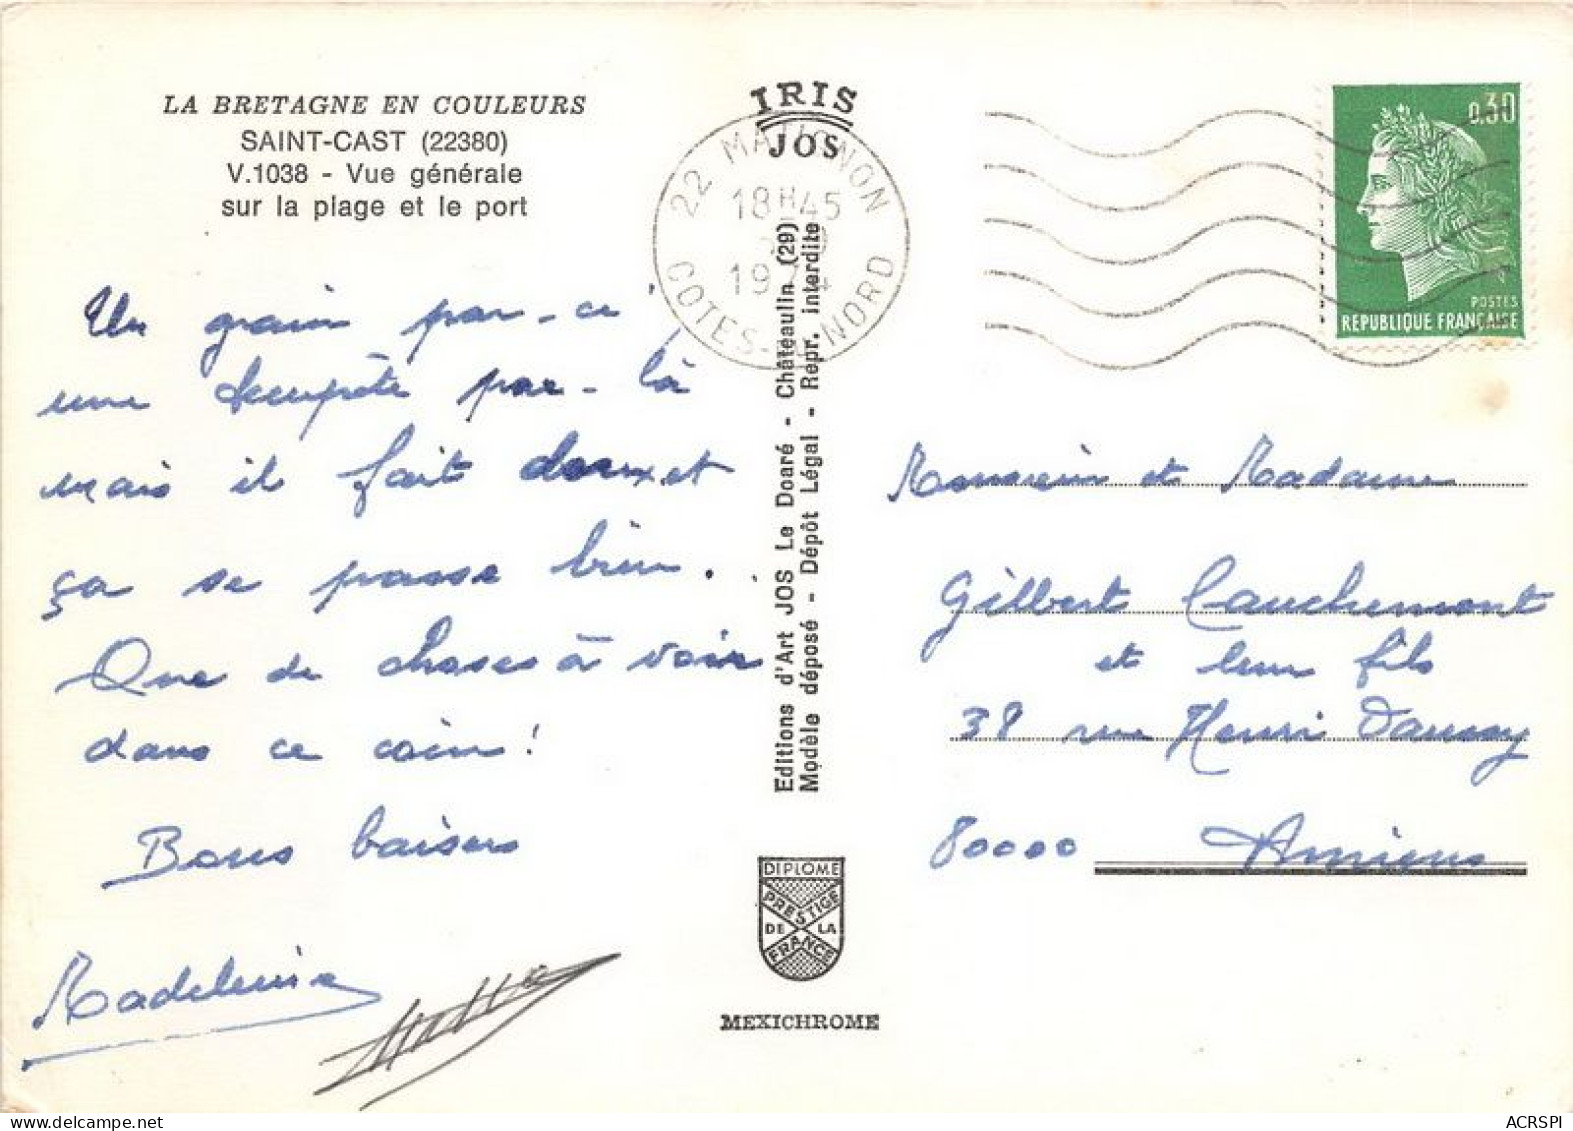 LA BRETAGNE EN COULEURS
SAINT-CAST (22380)
V.1038 - Vue générale
sur la plage et le port
Un grain par-ci
une tempête par-là
mais il fait doux et
ça se passe bien.
Que de choses à voir
dans ce coin!
Bons baisers
Madeleine
IRIS
JOS
22 MATIGNON
18H45
1974
COTES-DU-NORD
Editions d'Art JOS Le Doaré - Châteaulin (29)
Modèle déposé - Dépôt Légal - Repr. interdite
DIPLOME
PRESTIGE
DE LA
FRANCE
MEXICHROME
0,30
POSTES
REPUBLIQUE FRANÇAISE
Monsieur et Madame
Gilbert Cauchemont
et leur fils
38 rue Henri Daussy
80000 Amiens
ACRSPI